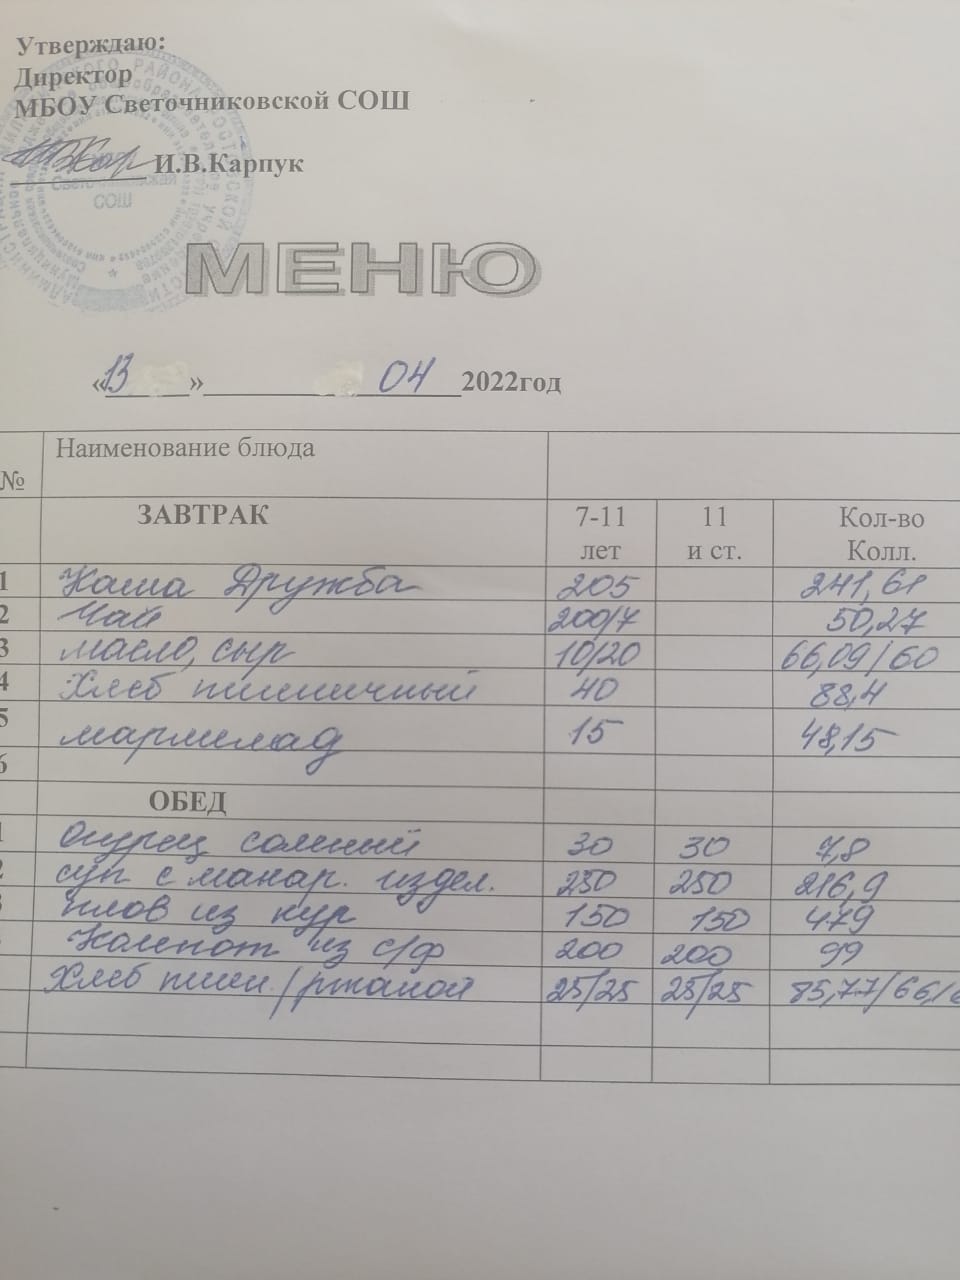 Утверждаю:
Директор
МБОУ Светочниковской СОШ
И.В.Карпук
СОШ
МЕНЮ
«13» 04 2022год
№ Наименование блюда
ЗАВТРАК 7-11 лет 11 и ст. Кол-во Колл.
1 Каша Дружба 205 241,61
2 Чай 200/7 50,27
3 масло, сыр 10/20 66,09/60
4 Хлеб пшеничный 40 88,4
5 мармелад 15 48,15
6
ОБЕД
1 Огурец соленый 30 30 7,8
2 суп с макар. издел. 250 250 216,9
3 плов из кур 150 150 479
Компот из с/ф 200 200 99
Хлеб пшен/ржаной 25/25 25/25 85,77/66,6